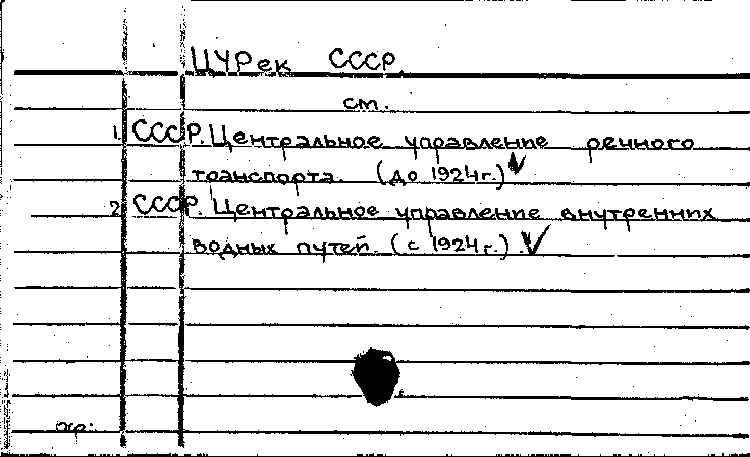 ЦУРек СССР.
см.
1. СССР. Центральное управление речного
транспорта. (до 1924г.) ✓
2. СССР. Центральное управление внутренних
водных путей. (с 1924г.). ✓